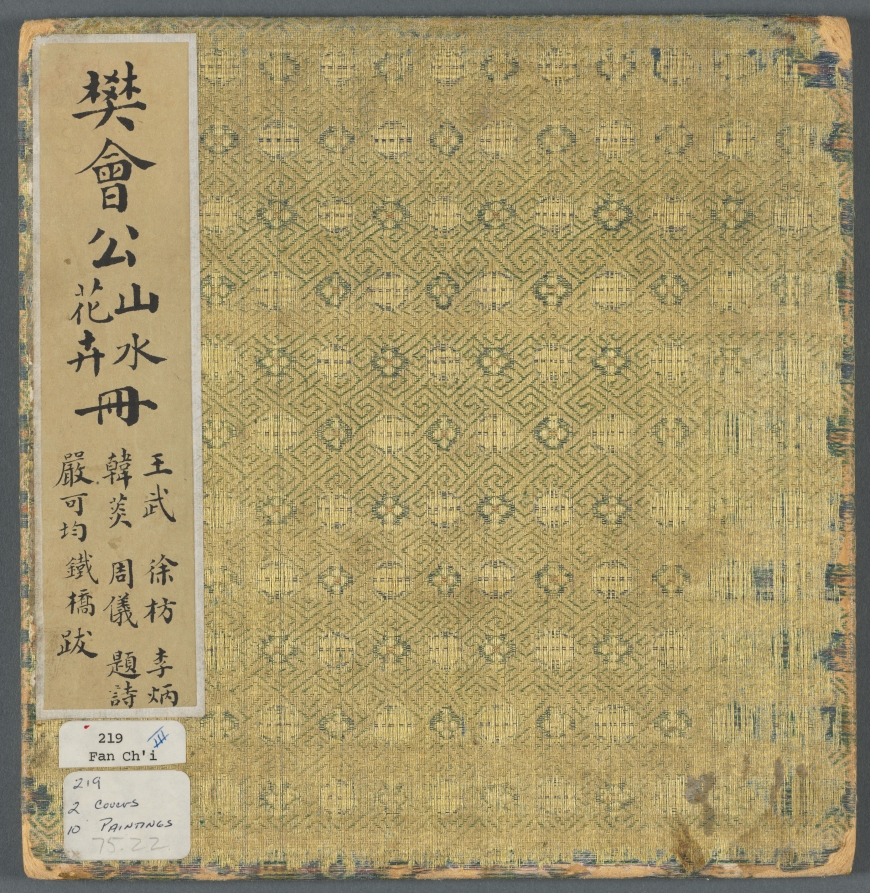 樊會公山水
花卉冊
王武 徐枋 李炳
韓菼 周儀 題詩
嚴可均 鐵橋 跋
219 III
Fan Ch'i
219
2 Covers
10 PAINTINGS
75.22